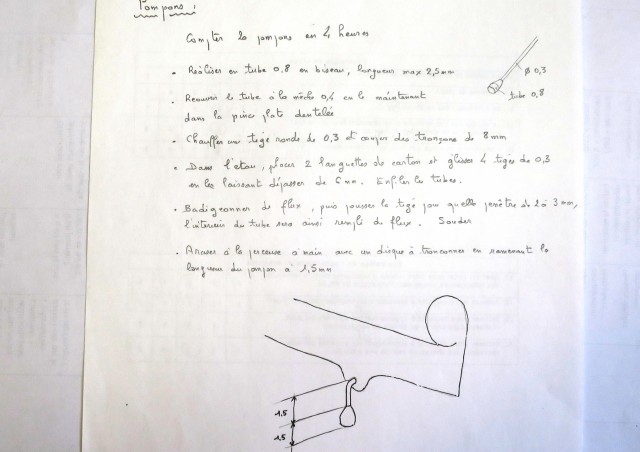 Pompons :
Compter 20 pompons en 4 heures
• Réaliser en tube 0,8 en biseau, longueur max 2,5mm
• Reouvrir le tube à la mèche 0,4 en le maintenant
dans la pince plate dentelée
• Chauffer une tige ronde de 0,3 et couper des tronçons de 8mm
• Dans l'étau, placer 2 languettes de carton et glisser 4 tiges de 0,3
en les laissant dépasser de 6mm. Enfiler les tubes.
• Badigeonner de flux, puis pousser la tige pour qu'elle pénètre de 2 à 3mm,
l'intérieur du tube sera ainsi rempli de flux. Souder
• Araser à la perceuse à main avec un disque à tronçonner en ramenant la
longueur du pompon à 1,5mm
Ø 0,3
tube 0,8
1.5
1.5